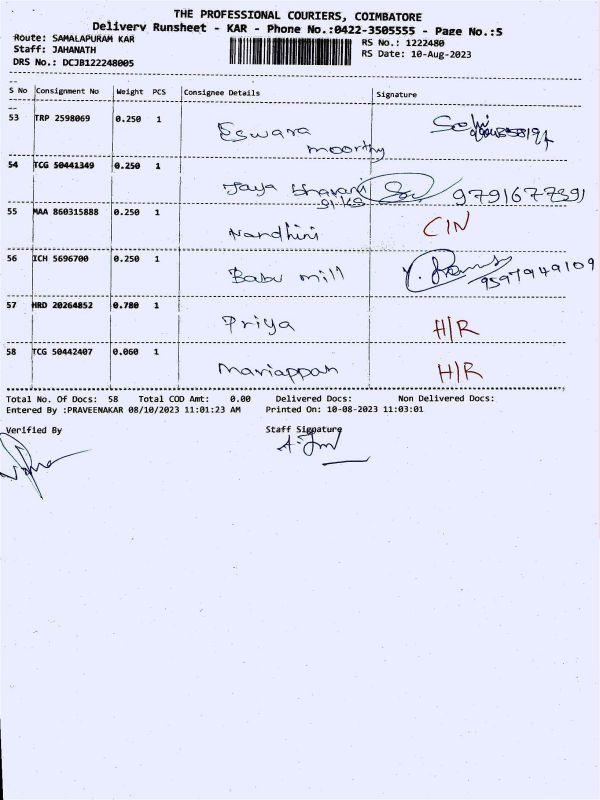 THE PROFESSIONAL COURIERS, COIMBATORE
Delivery Runsheet - KAR - Phone No.:0422-3505555 - Page No.:5
Route: SAMALAPURAM KAR
Staff: JAHANATH
DRS No.: DCJB122248005
RS No.: 1222480
RS Date: 10-Aug-2023
S No Consignment No Weight PCS Consignee Details Signature
53 TRP 2598069 0.250 1 Eswara
moorthy
54 TCG 50441349 0.250 1 Jaya bharani 9791677391
55 MAA 860315888 0.250 1 Nandhini C/N
56 ICH 5696700 0.250 1 Babu mill 9597949109
57 HRD 20264852 0.780 1 Priya H/R
58 TCG 50442407 0.060 1 Mariappan H/R
Total No. Of Docs: 58 Total COD Amt: 0.00 Delivered Docs: Non Delivered Docs:
Entered By :PRAVEENAKAR 08/10/2023 11:01:23 AM Printed On: 10-08-2023 11:03:01
Verified By Staff Signature